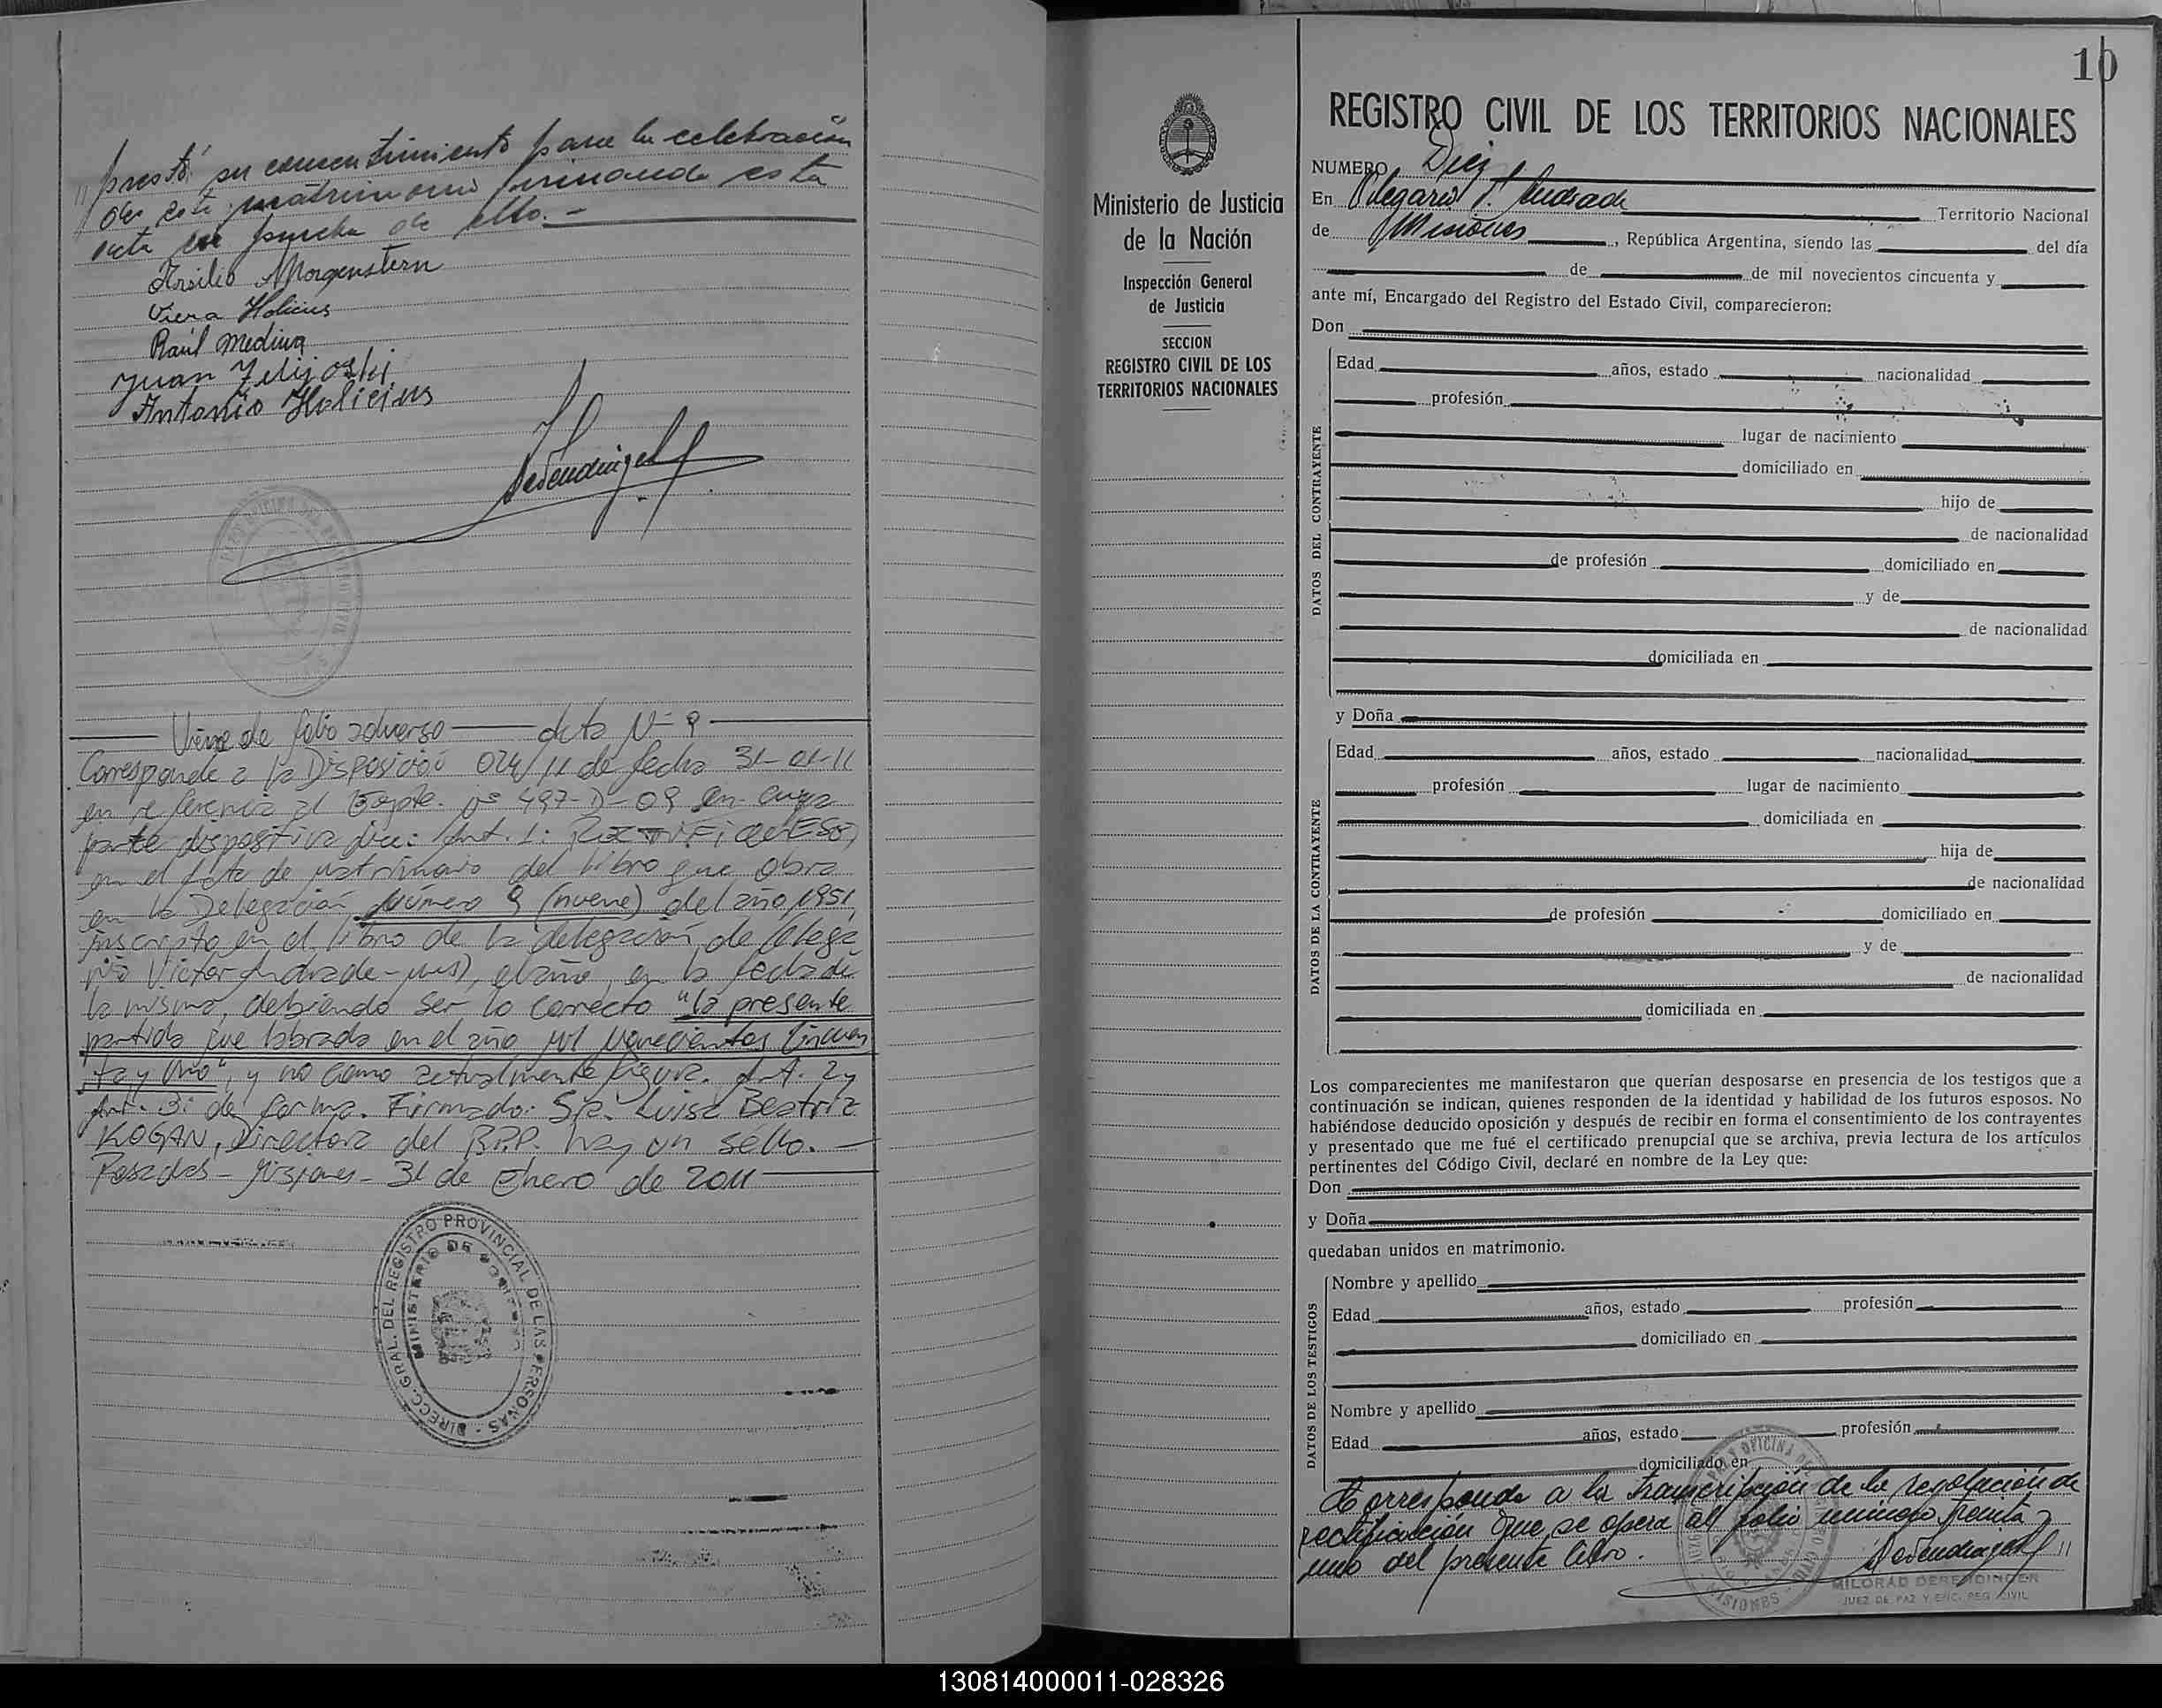 // prestó su consentimiento para la celebración
de este matrimonio firmando esta
acta en prueba de ello. -
Morgenstern
Viera Holicius
Raúl Medina
Juan
Antonio Holicius
Viene de folio adverso — acta Nº 9
Corresponde a la Disposició 024/11 de fecha 31-01-11
en referencia al Expte. nº 497-D-09 en cuya
parte dispositiva dice: Art. 1: RECTIFIQUESE,
en el Acta de matrimonio del libro que obra
en la Delegación, Número 9 (nueve) del año 1951,
inscripta en el libro de la delegación de Olega
rio Victor Andrade-Mnes), el año, en la fecha de
la misma, debiendo ser lo correcto "la presente
partida fue labrada en el año mil novecientos Cincuen
ta y Uno", y no como actualmente figura. Art. 2 y
Art. 3: de forma. Firmado: Sra. Luisa Beatriz
KOGAN, Directora del R.P.P. hay un sello. —
Posadas - Misiones - 31 de Enero de 2011
DIRECC. GRAL. DEL REGISTRO PROVINCIAL DE LAS PERSONAS
MINISTERIO DE GOBIERNO
10
Ministerio de Justicia
de la Nación
Inspección General
de Justicia
SECCION
REGISTRO CIVIL DE LOS
TERRITORIOS NACIONALES
REGISTRO CIVIL DE LOS TERRITORIOS NACIONALES
NUMERO Diez
En Olegario V. Andrade Territorio Nacional
de Misiones, República Argentina, siendo las del día
de de mil novecientos cincuenta y
ante mí, Encargado del Registro del Estado Civil, comparecieron:
Don
DATOS DEL CONTRAYENTE
Edad años, estado nacionalidad
profesión
lugar de nacimiento
domiciliado en
hijo de
de nacionalidad
de profesión domiciliado en
y de
de nacionalidad
domiciliada en
y Doña
DATOS DE LA CONTRAYENTE
Edad años, estado nacionalidad
profesión lugar de nacimiento
domiciliada en
hija de
de nacionalidad
de profesión domiciliado en
y de
de nacionalidad
domiciliada en
Los comparecientes me manifestaron que querían desposarse en presencia de los testigos que a
continuación se indican, quienes responden de la identidad y habilidad de los futuros esposos. No
habiéndose deducido oposición y después de recibir en forma el consentimiento de los contrayentes
y presentado que me fué el certificado prenupcial que se archiva, previa lectura de los artículos
pertinentes del Código Civil, declaré en nombre de la Ley que:
Don
y Doña
quedaban unidos en matrimonio.
DATOS DE LOS TESTIGOS
Nombre y apellido
Edad años, estado profesión
domiciliado en
Nombre y apellido
Edad años, estado profesión
domiciliado en
Corresponde a la transcripción de la resolución de
rectificación que se opera al folio número treinta y
uno del presente libro.
MILORAD DERENDINGER
JUEZ DE PAZ Y ENC. REG. CIVIL
130814000011-028326